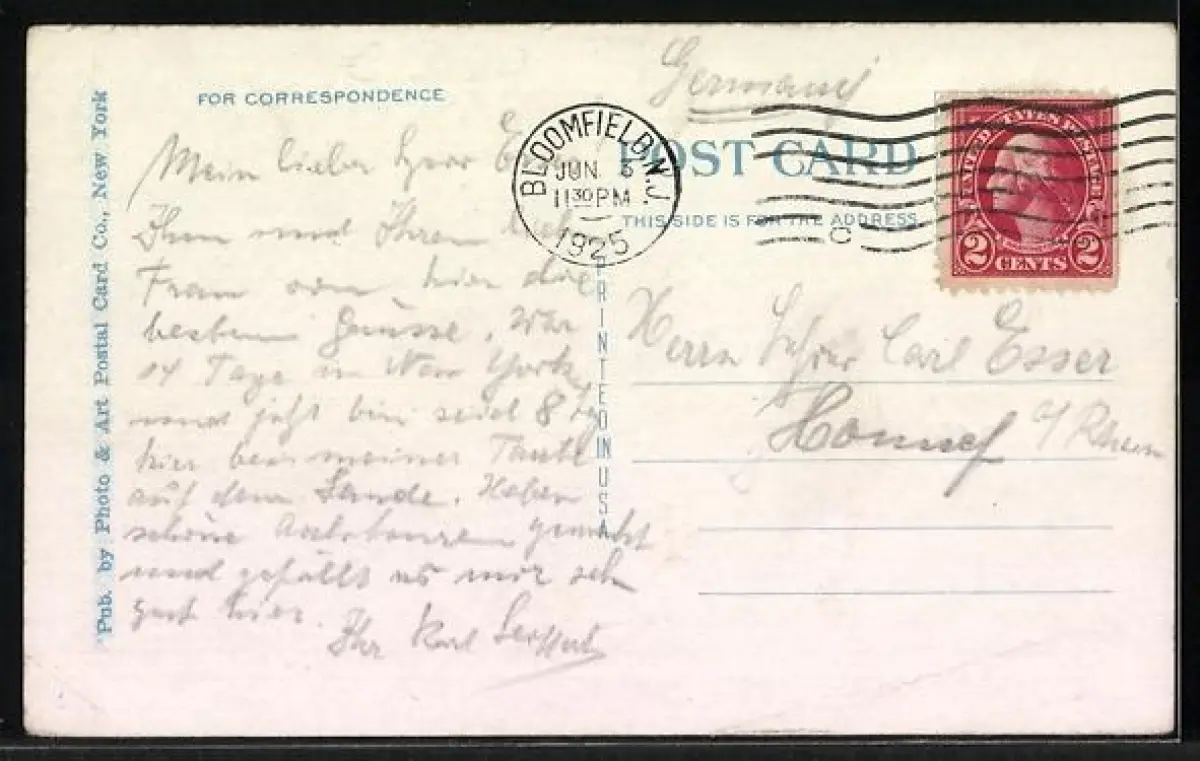 Germany
FOR CORRESPONDENCE
POST CARD
THIS SIDE IS FOR THE ADDRESS
BLOOMFIELD N.J.
JUN.
11 30 PM
1925
C
UNITED STATES POSTAGE
2 CENTS 2
Mein lieber Herr
Ihnen und Ihrer
Frau von hier die
besten Grüsse. War
14 Tage in New York
und jetzt bin seit 8 Tg
hier bei meiner Tante
auf dem Lande. Haben
schöne Autotouren gemacht
und gefällt es mir seh
gut hier.
Ihr Karl Seiffert
Herrn Carl Esser
Honnef a/Rhein
PRINTED IN USA
Pub. by Photo & Art Postal Card Co., New York